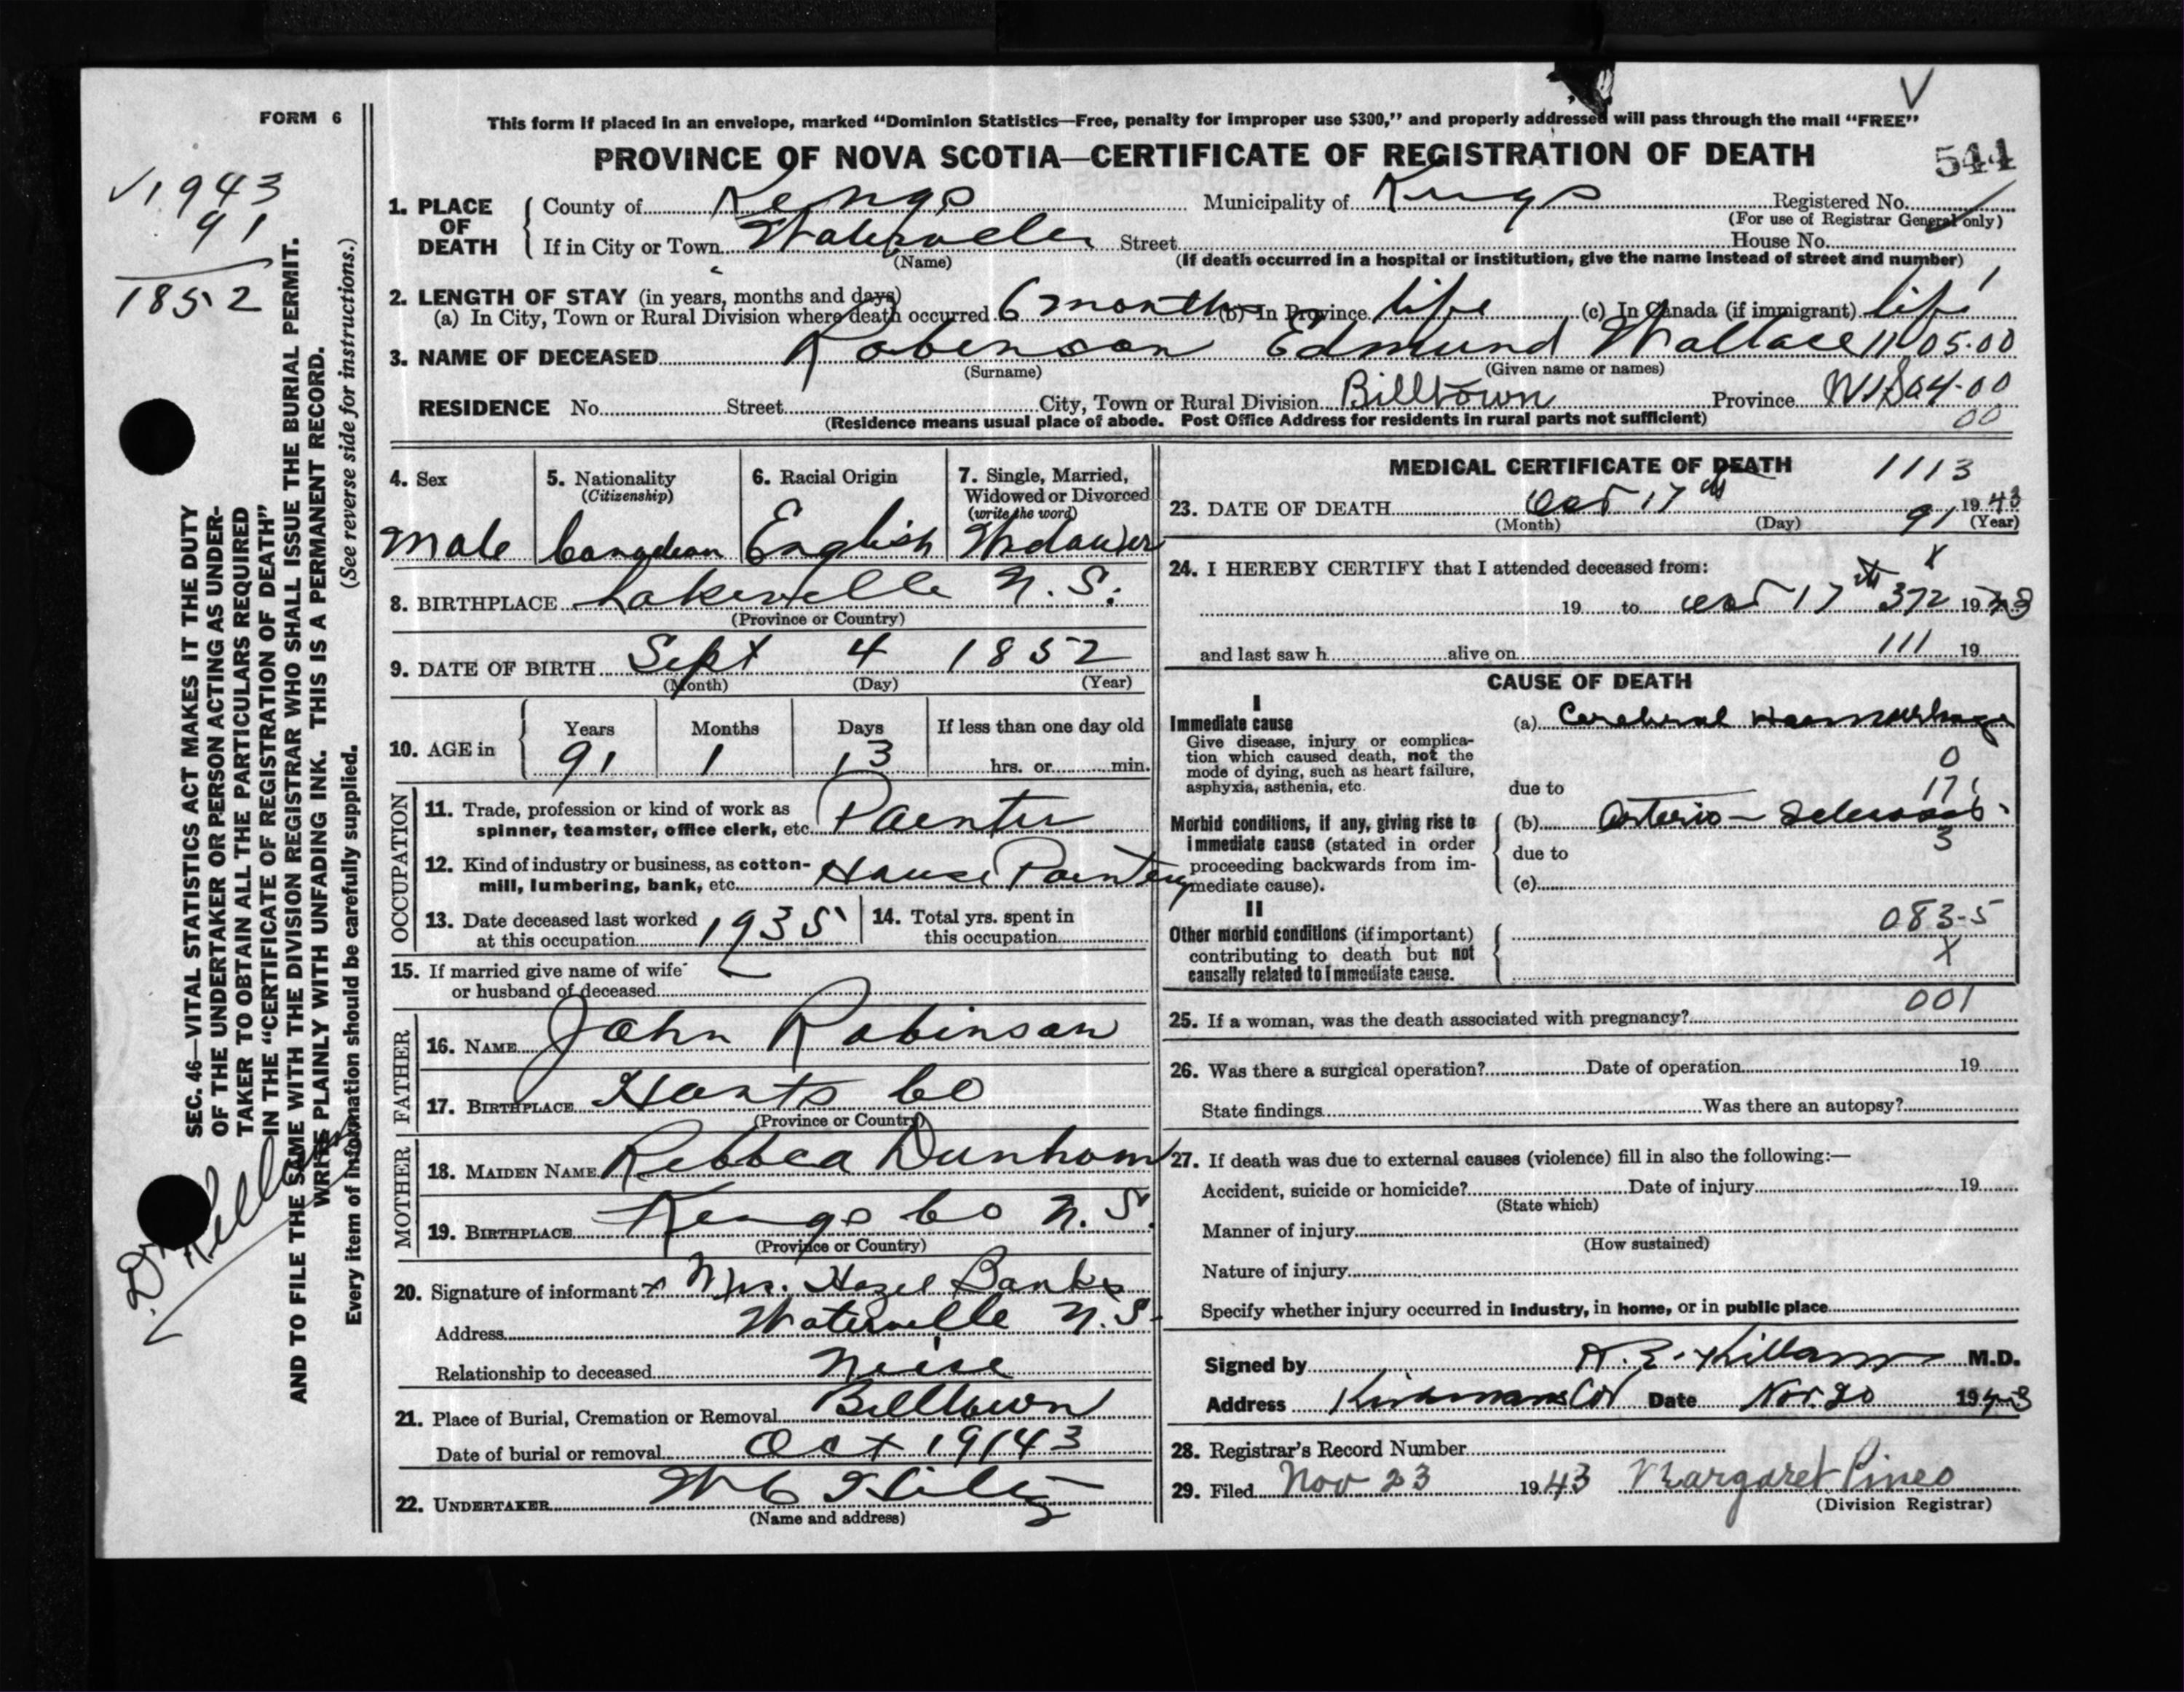 FORM 6
This form if placed in an envelope, marked “Dominion Statistics—Free, penalty for improper use $300,” and properly addressed will pass through the mail “FREE”
PROVINCE OF NOVA SCOTIA—CERTIFICATE OF REGISTRATION OF DEATH
544
√1943
91
1852
1. PLACE OF DEATH
County of Kings Municipality of Kings Registered No.
(For use of Registrar General only)
If in City or Town Waterville Street House No.
(Name) (If death occurred in a hospital or institution, give the name instead of street and number)
2. LENGTH OF STAY (in years, months and days)
(a) In City, Town or Rural Division where death occurred 6 months (b) In Province life (c) In Canada (if immigrant) life
3. NAME OF DECEASED Robinson Edmund Wallace 11 05.00
(Surname) (Given name or names)
RESIDENCE No. Street City, Town or Rural Division Billtown Province N.S. 04-00
00
(Residence means usual place of abode. Post Office Address for residents in rural parts not sufficient)
4. Sex
Male
5. Nationality
(Citizenship)
Canadian
6. Racial Origin
English
7. Single, Married,
Widowed or Divorced
(write the word)
Widower
8. BIRTHPLACE Lakeville N.S.
(Province or Country)
9. DATE OF BIRTH Sept 4 1852
(Month) (Day) (Year)
10. AGE in
Years Months Days If less than one day old
91 1 13 hrs. or min.
OCCUPATION
11. Trade, profession or kind of work as
spinner, teamster, office clerk, etc. Painter
12. Kind of industry or business, as cotton-
mill, lumbering, bank, etc. House Painting
13. Date deceased last worked
at this occupation 1935
14. Total yrs. spent in
this occupation
15. If married give name of wife
or husband of deceased
FATHER
16. NAME John Robinson
17. BIRTHPLACE Hants Co
(Province or Country)
MOTHER
18. MAIDEN NAME Rebbca Dunham
19. BIRTHPLACE Kings Co N.S.
(Province or Country)
20. Signature of informant x Mrs. Hazel Banks
Address Waterville N.S.
Relationship to deceased Neice
21. Place of Burial, Cremation or Removal Billtown
Date of burial or removal Oct 19/43
22. UNDERTAKER W C
(Name and address)
MEDICAL CERTIFICATE OF DEATH 1113
23. DATE OF DEATH Oct 17th 1943
(Month) (Day) 91 (Year)
24. I HEREBY CERTIFY that I attended deceased from: x
19 to Oct 17th 372 1943
and last saw h alive on 111 19
CAUSE OF DEATH
I
Immediate cause
Give disease, injury or complica-
tion which caused death, not the
mode of dying, such as heart failure,
asphyxia, asthenia, etc.
(a) Cerebral Haemorrhage
0
due to 17
Morbid conditions, if any, giving rise to
immediate cause (stated in order
proceeding backwards from im-
mediate cause).
(b) Arterio-Sclerosis
3
due to
(c)
II
Other morbid conditions (if important)
contributing to death but not
causally related to immediate cause.
083-5
X
001
25. If a woman, was the death associated with pregnancy?
26. Was there a surgical operation? Date of operation 19
State findings Was there an autopsy?
27. If death was due to external causes (violence) fill in also the following:—
Accident, suicide or homicide? Date of injury 19
(State which)
Manner of injury
(How sustained)
Nature of injury
Specify whether injury occurred in industry, in home, or in public place
Signed by Killam M.D.
Address Date Nov. 20 1943
28. Registrar's Record Number
29. Filed Nov 23 1943 Margaret Pineo
(Division Registrar)
SEC. 46—VITAL STATISTICS ACT MAKES IT THE DUTY
OF THE UNDERTAKER OR PERSON ACTING AS UNDER-
TAKER TO OBTAIN ALL THE PARTICULARS REQUIRED
IN THE “CERTIFICATE OF REGISTRATION OF DEATH”
AND TO FILE THE SAME WITH THE DIVISION REGISTRAR WHO SHALL ISSUE THE BURIAL PERMIT.
WRITE PLAINLY WITH UNFADING INK. THIS IS A PERMANENT RECORD.
(See reverse side for instructions.)
Every item of information should be carefully supplied.
Dr. Killam